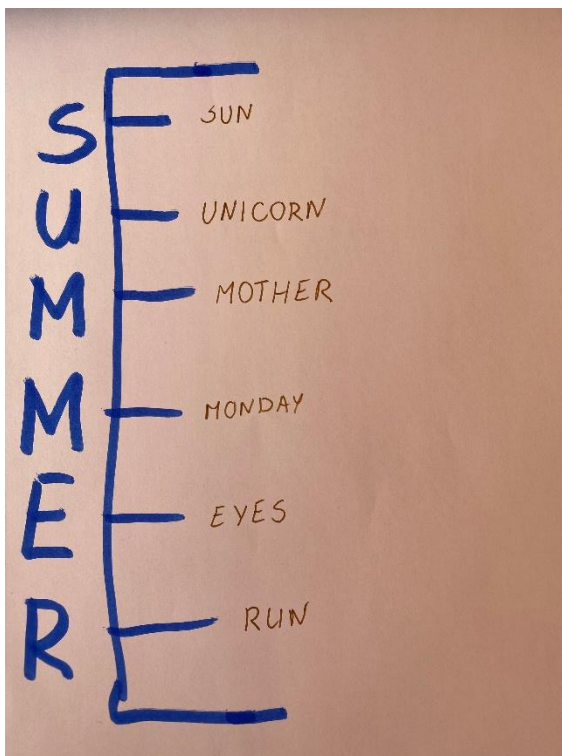 S SUN
U UNICORN
M MOTHER
M MONDAY
E EYES
R RUN